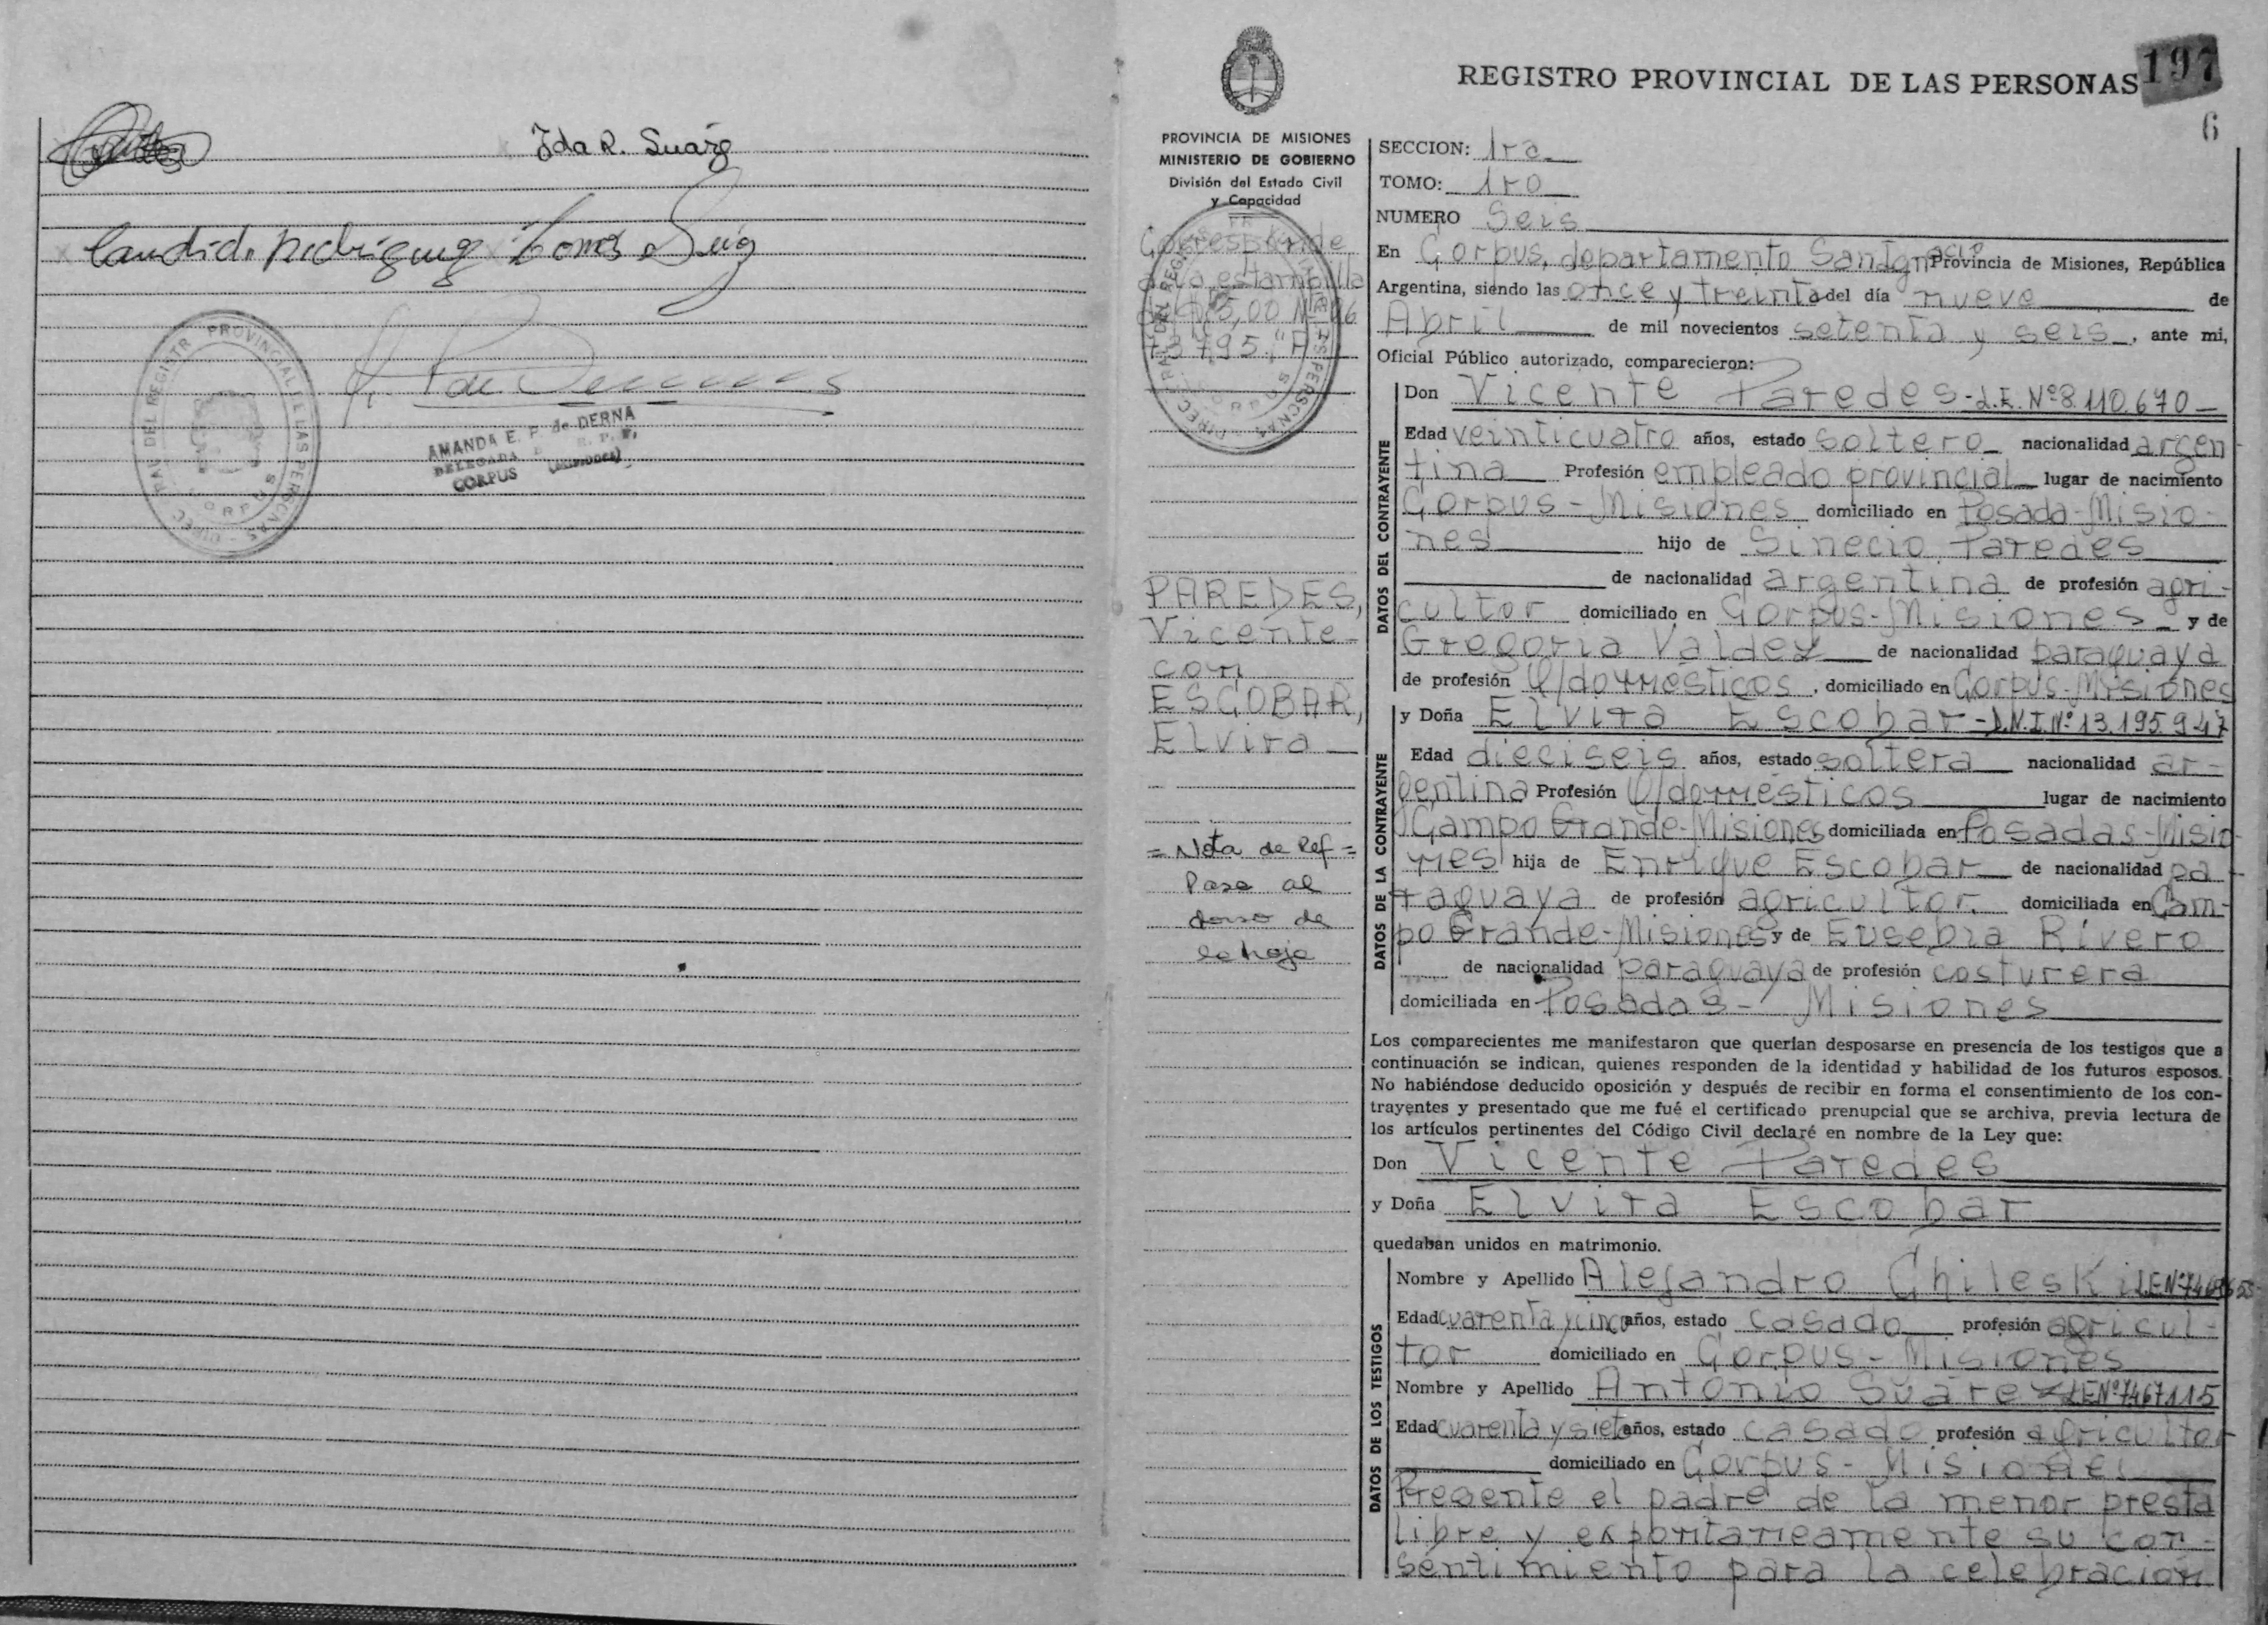 Ida R. Suárez
Candido Rodriguez
DIREC. PRAL DEL REGISTR. PROVINCIAL E LAS PERSONAS
CORPUS
AMANDA E. P. de DERNA
DELEGADA
CORPUS (MISIONES)
REGISTRO PROVINCIAL DE LAS PERSONAS
197
6
PROVINCIA DE MISIONES
MINISTERIO DE GOBIERNO
División del Estado Civil
y Capacidad
Corresponde
a la estampilla
73795 "A"
PAREDES,
Vicente
con
ESCOBAR,
Elvira
= Nota de Ref =
Pasa al
dorso de
la hoja
SECCION: 1ra
TOMO: 1ro
NUMERO Seis
En Corpus, departamento San Ignacio Provincia de Misiones, República
Argentina, siendo las once y treinta del día nueve de
Abril de mil novecientos setenta y seis, ante mi,
Oficial Público autorizado, comparecieron:
DATOS DEL CONTRAYENTE
Don Vicente Paredes - L.E. Nº 8.110.670 -
Edad veinticuatro años, estado soltero nacionalidad argen-
tina Profesión empleado provincial lugar de nacimiento
Corpus - Misiones domiciliado en Posada - Misio-
nes hijo de Sinecio Paredes
de nacionalidad argentina de profesión agri-
cultor domiciliado en Corpus - Misiones y de
Gregoria Valdez de nacionalidad paraguaya
de profesión Q/domésticos, domiciliado en Corpus - Misiones
DATOS DE LA CONTRAYENTE
y Doña Elvira Escobar - D.N.I. Nº 13.195.947
Edad dieciseis años, estado soltera nacionalidad ar-
gentina Profesión Q/domésticos lugar de nacimiento
Campo Grande - Misiones domiciliada en Posadas - Misio-
nes hija de Enrique Escobar de nacionalidad pa-
raguaya de profesión agricultor. domiciliada en Cam-
po Grande - Misiones y de Eusebia Rivero
de nacionalidad paraguaya de profesión costurera
domiciliada en Posadas - Misiones
Los comparecientes me manifestaron que querían desposarse en presencia de los testigos que a
continuación se indican, quienes responden de la identidad y habilidad de los futuros esposos.
No habiéndose deducido oposición y después de recibir en forma el consentimiento de los con-
trayentes y presentado que me fué el certificado prenupcial que se archiva, previa lectura de
los artículos pertinentes del Código Civil declaré en nombre de la Ley que:
Don Vicente Paredes
y Doña Elvira Escobar
quedaban unidos en matrimonio.
DATOS DE LOS TESTIGOS
Nombre y Apellido Alejandro Chileski L.E. Nº
Edad cuarenta y cinco años, estado casado profesión agricul-
tor domiciliado en Corpus - Misiones
Nombre y Apellido Antonio Suarez L.E. Nº 7467115
Edad cuarenta y siete años, estado casado profesión agricultor
domiciliado en Corpus - Misiones
Presente el padre de la menor presta
libre y expontaneamente su con-
sentimiento para la celebración